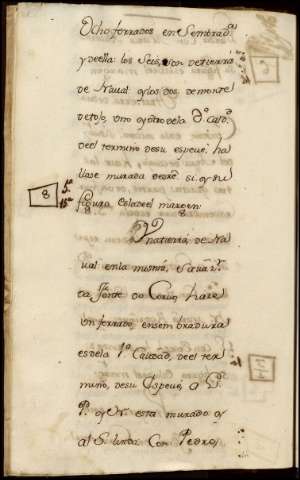 Ocho ferrados en Sembrad.ª
y de ella los Seis, son de tierra
de Naval y los dos de monte
de tojo, uno y otro de la 2.ª Calid.
de el termino de su espeue, ha
llase murada sobre si y su
figura es la de el margen
8
Una tierra de Na
val en la misma,
da Fonte do Corvo, hace
un ferrado en sembradura
es de la 1.ª Calidad, de el ter
mino, de su Espeue, a L.
P. y N. esta murado y
al S. linda Con Pedro